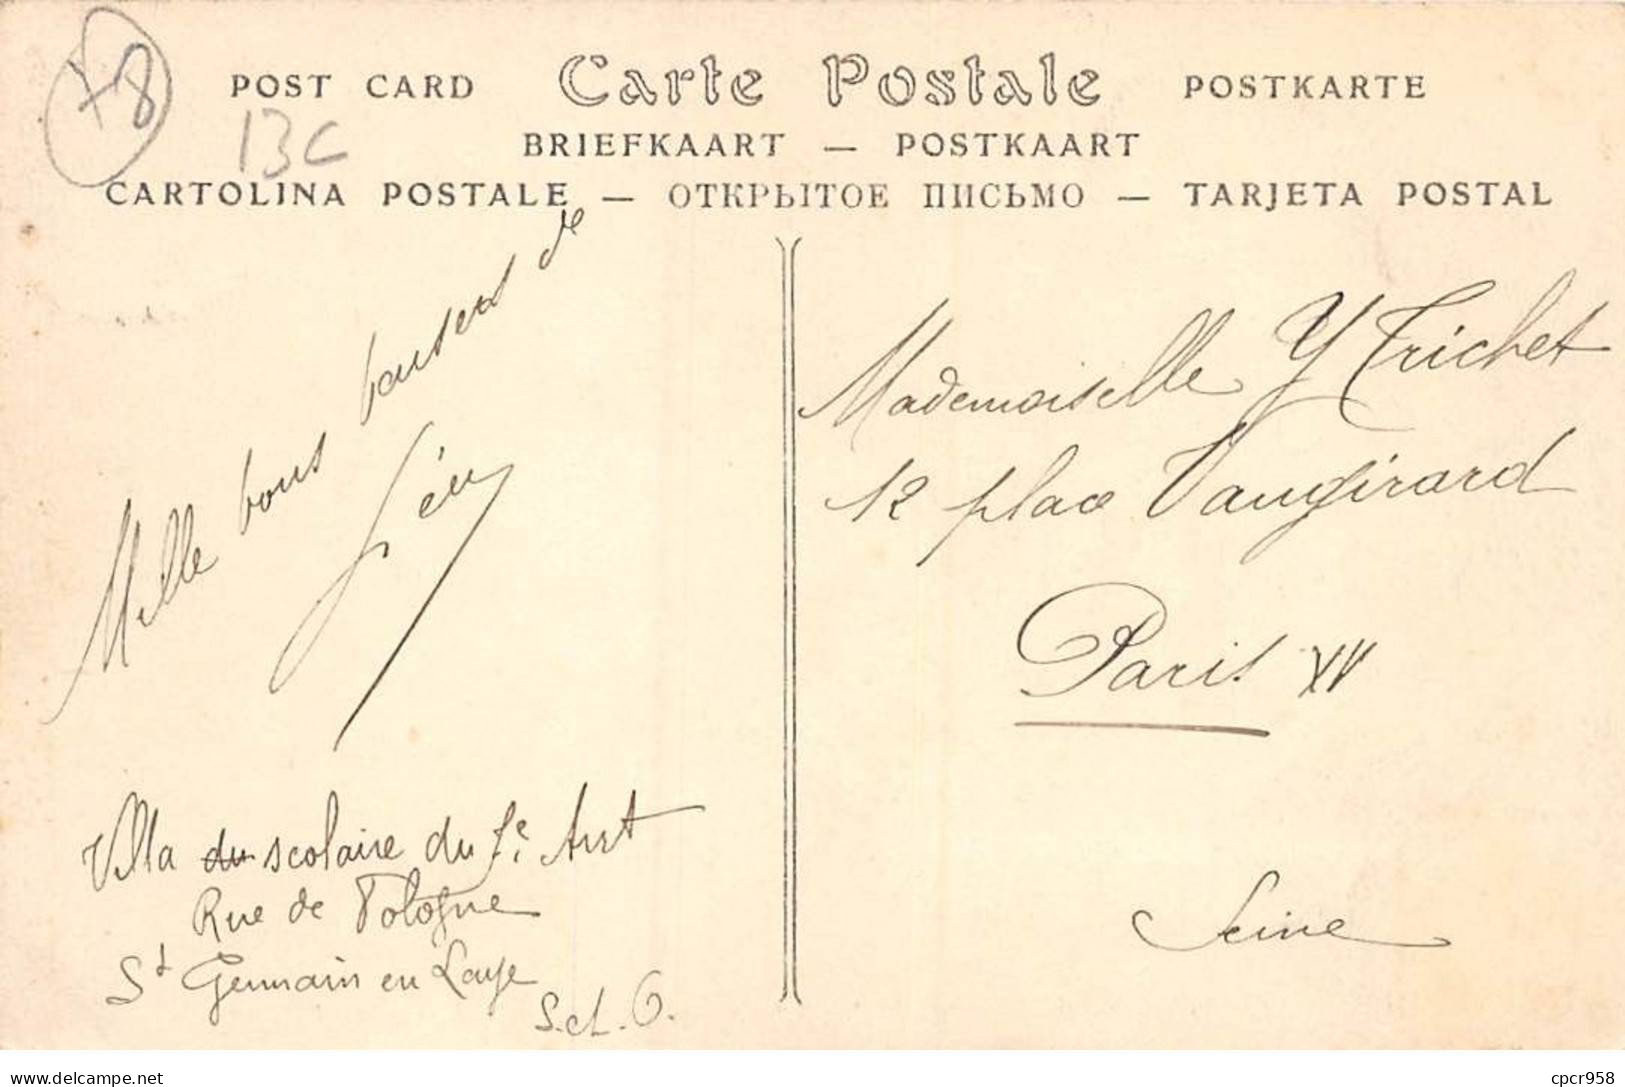 78
POST CARD Carte Postale POSTKARTE
13C
BRIEFKAART — POSTKAART
CARTOLINA POSTALE — ОТКРЫТОЕ ПИСЬМО — TARJETA POSTAL
Mille bons baisers de
Mademoiselle Y Trichet
12 place Vaugirard
Paris XV
Seine
Villa du scolaire du Arrt
Rue de Pologne
St Germain en Laye
S. et O.
delcampe.net
cpcr958